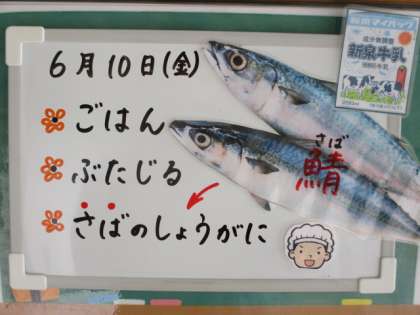 6月10日(金)
ごはん
ぶたじる
さばのしょうがに
さば
鯖
新泉牛乳